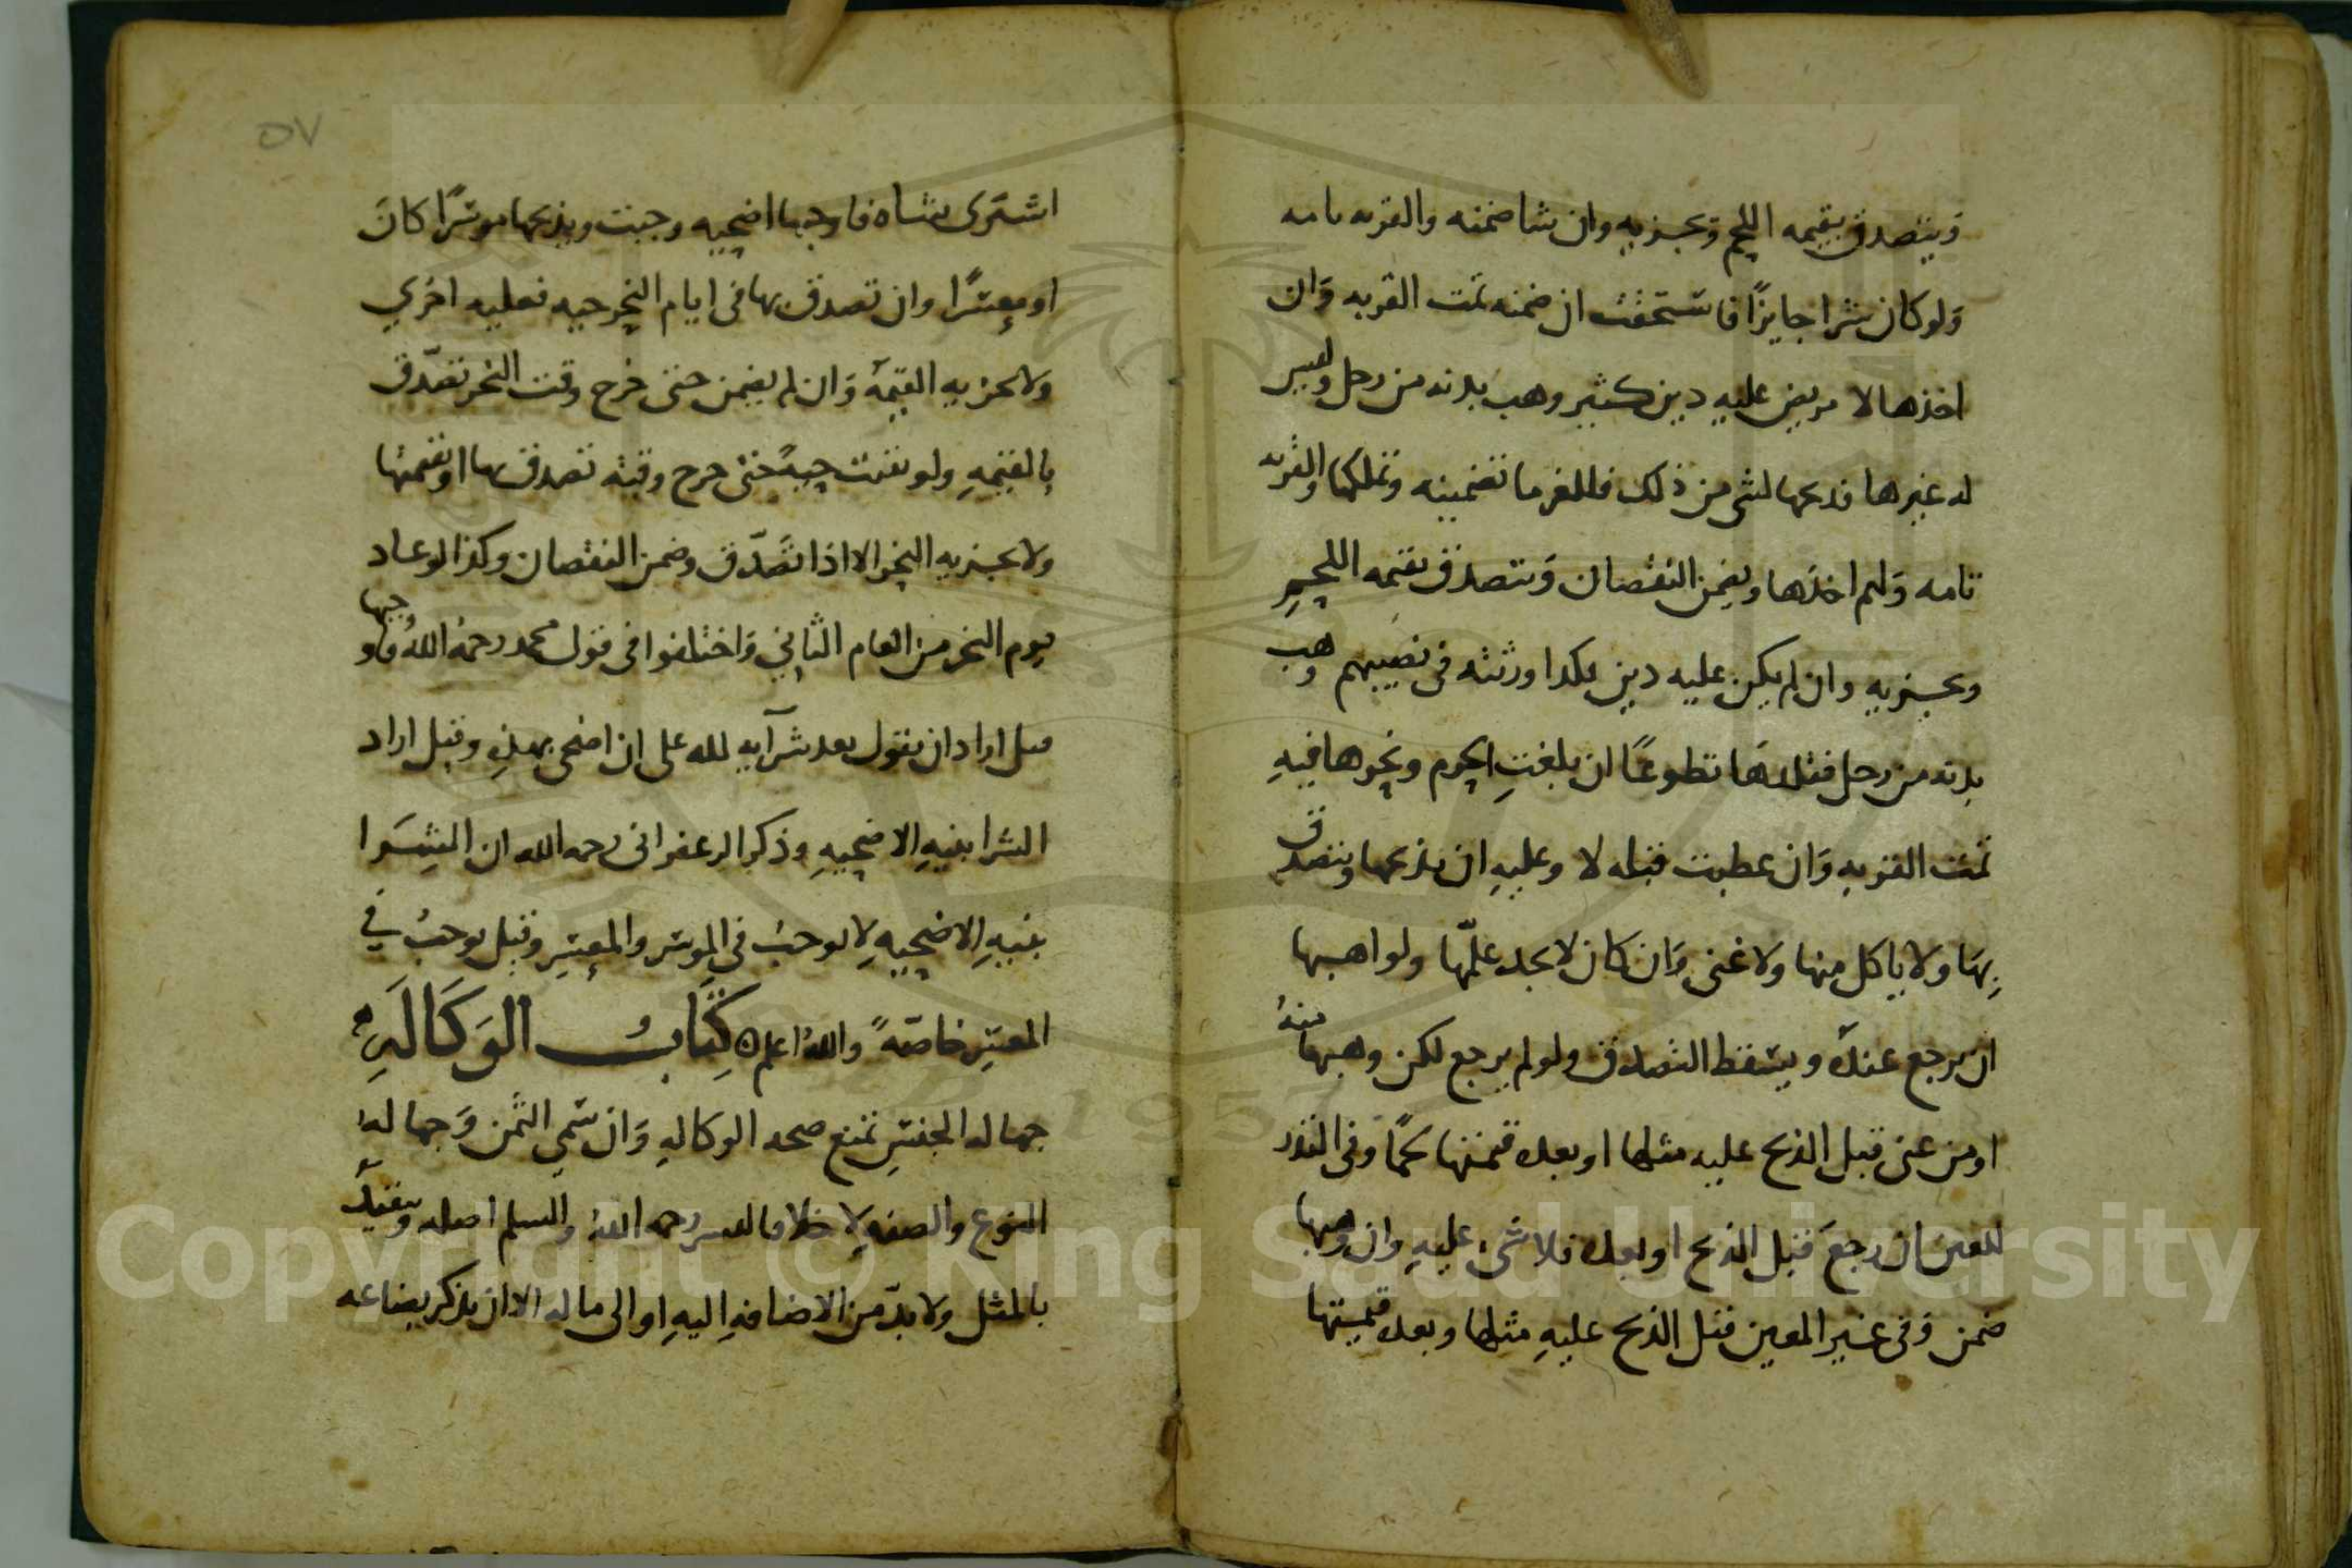 ويتصدق بقيمه اللحم ويجزيه وان شا ضمنه والقربه تامه
ولو كان شرا جايزًا فاستحقت ان ضمنه تمت القربه وان
اخذها لا مريض عليه دين كثير وهب بدنه من رجل وليس
له غيرها فذبحها لشي من ذلك فللغرما تضمينه وتملكها والقربه
تامه ولهم اخذها ويضمن النقصان ويتصدق بقيمه اللحم
ويجزيه وان لم يكن عليه دين فكذا ورثته في نصيبهم وهب
بدنه من رجل فقلدها تطوعًا ان بلغت الحرم ونحرها فيه
تمت القربه وان عطبت قبله لا وعليه ان يذبحها ويتصدق
بها ولا ياكل منها ولا غنى وان كان لا يجد علّمها ولواهبها
ان يرجع عنده ويسقط التصدق ولو لم يرجع لكن وهبها منه
او من غنى قبل الذبح عليه مثلها او بعده قيمتها لحمًا وفى النذر
المعين ان رجع قبل الذبح او بعده فلا شى عليه وان وهبها
ضمن وفى غير المعين قبل الذبح عليه مثلها وبعده قيمتها
٥٧
اشترى شاه فاوجبها اضحيه وجبت ويذبحها موسرًا كان
او معسرًا وان تصدق بها فى ايام النحر حيه فعليه اخري
ولا تجزيه القيمه وان لم يضمن حتى خرج وقت النحر تصدّق
بالقيمه ولو بقيت حيهً حتى خرج وقته تصدق بها او بقيمتها
ولا يجزيه النحر الا اذا تصدّق وضمن النقصان وكذا لو عاد
يوم النحر من العام الثاني واختلفوا فى قول محمد رحمه الله فاوجبها
قيل اراد ان يقول بعد شرآيه لله على ان اضحى بهذه وقيل اراد
الشرا بنيه الاضحيه وذكر الزعفرانى رحمه الله ان الشرا
بنيه الاضحيه لا يوجبُ فى الموسر والمعسر وقيل يوجبُ في
المعسر خاصّهً والله اعلم كتاب الوكاله
جهاله الجنس تمنع صحه الوكاله وان سمي الثمن وجهاله
النوع والصفه لا خلافا لبشر رحمه الله والسلم اصله ويتقيد
بالمثل ولا بدّ من الاضافه اليه او الى ماله الا ان يذكر بضاعه
Copyright © King Saud University
1957